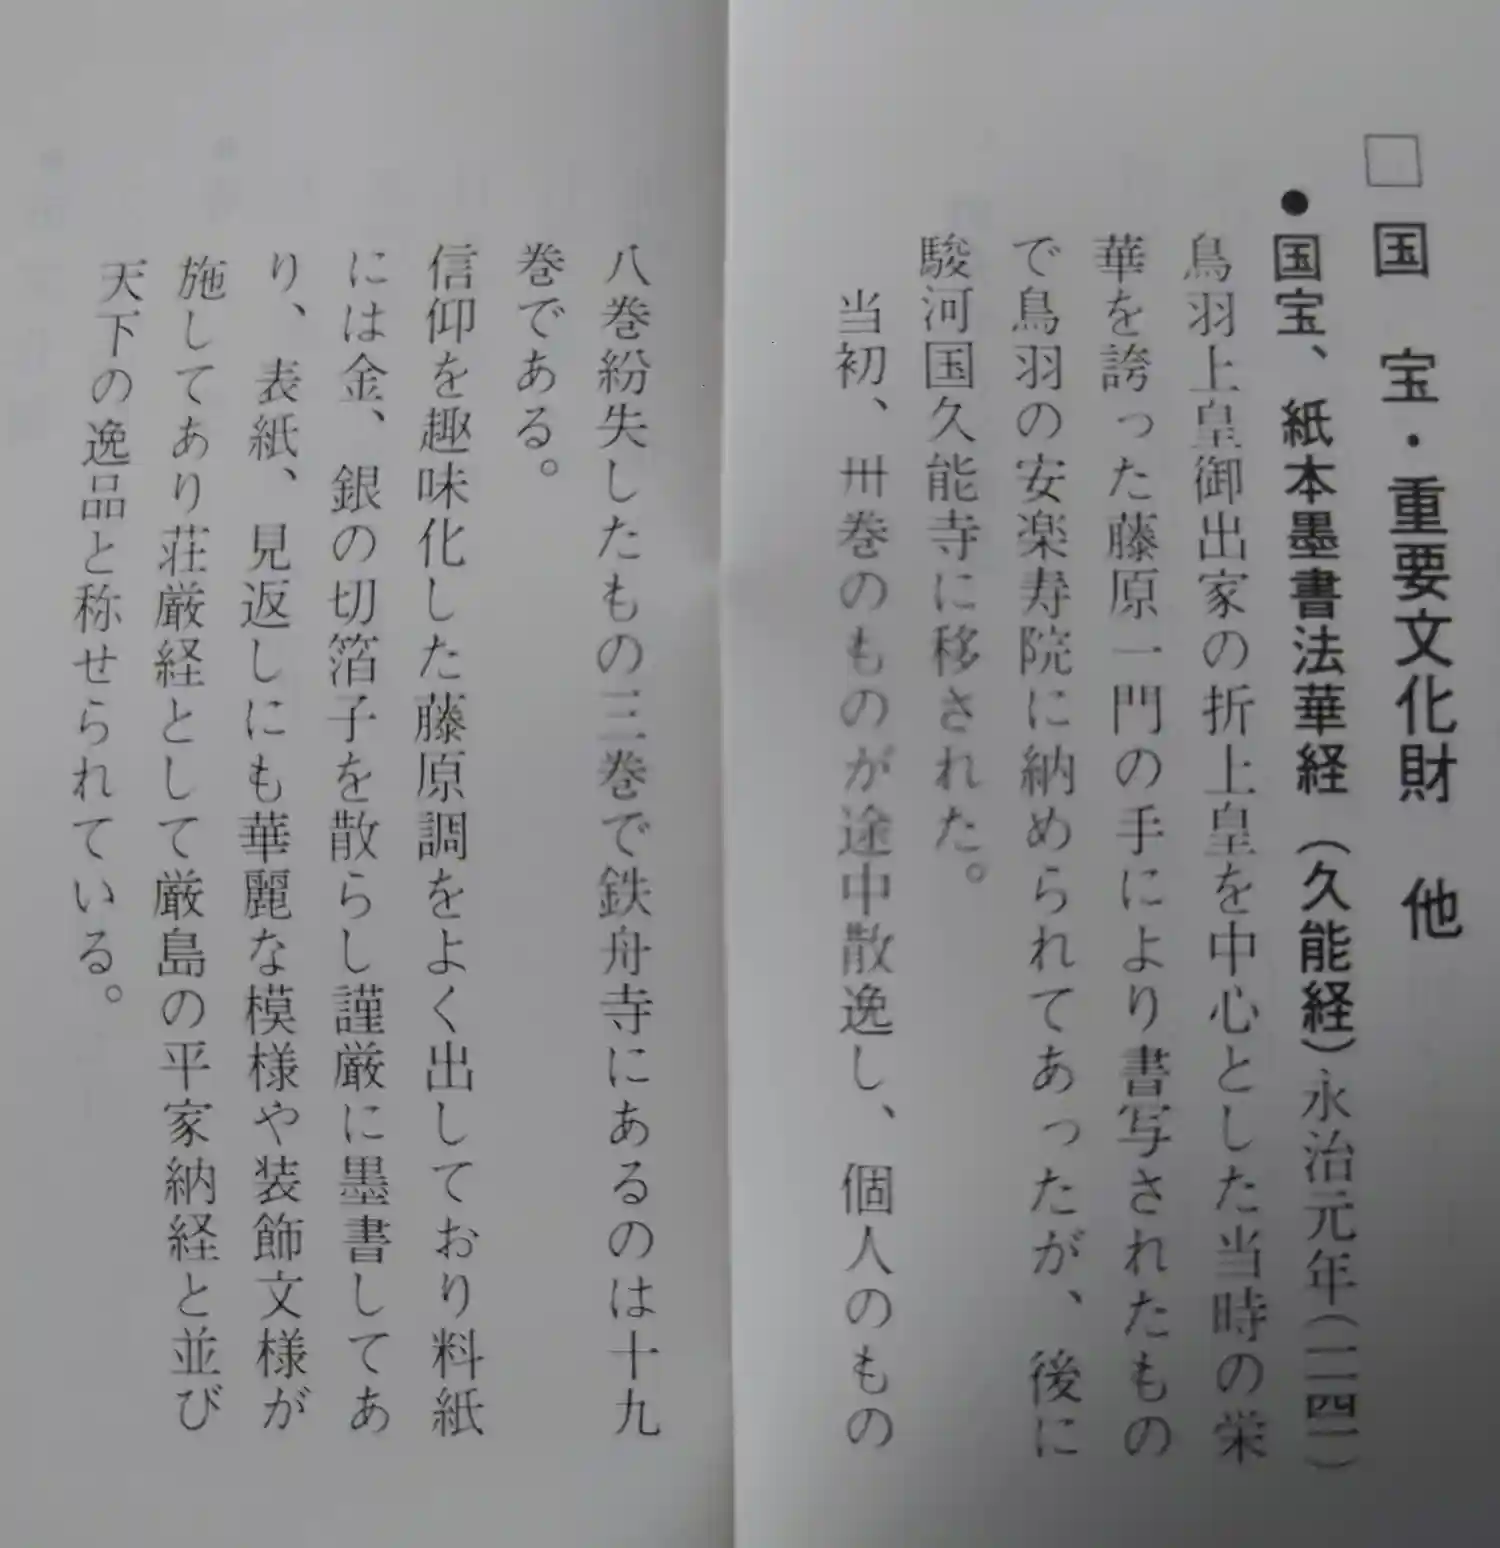 □ 国 宝・重要文化財 他
●国宝、紙本墨書法華経(久能経)永治元年(一一四一)
鳥羽上皇御出家の折上皇を中心とした当時の栄
華を誇った藤原一門の手により書写されたもの
で鳥羽の安楽寿院に納められてあったが、後に
駿河国久能寺に移された。
当初、卅巻のものが途中散逸し、個人のもの
八巻紛失したもの三巻で鉄舟寺にあるのは十九
巻である。
信仰を趣味化した藤原調をよく出しており料紙
には金、銀の切箔子を散らし謹厳に墨書してあ
り、表紙、見返しにも華麗な模様や装飾文様が
施してあり荘厳経として厳島の平家納経と並び
天下の逸品と称せられている。